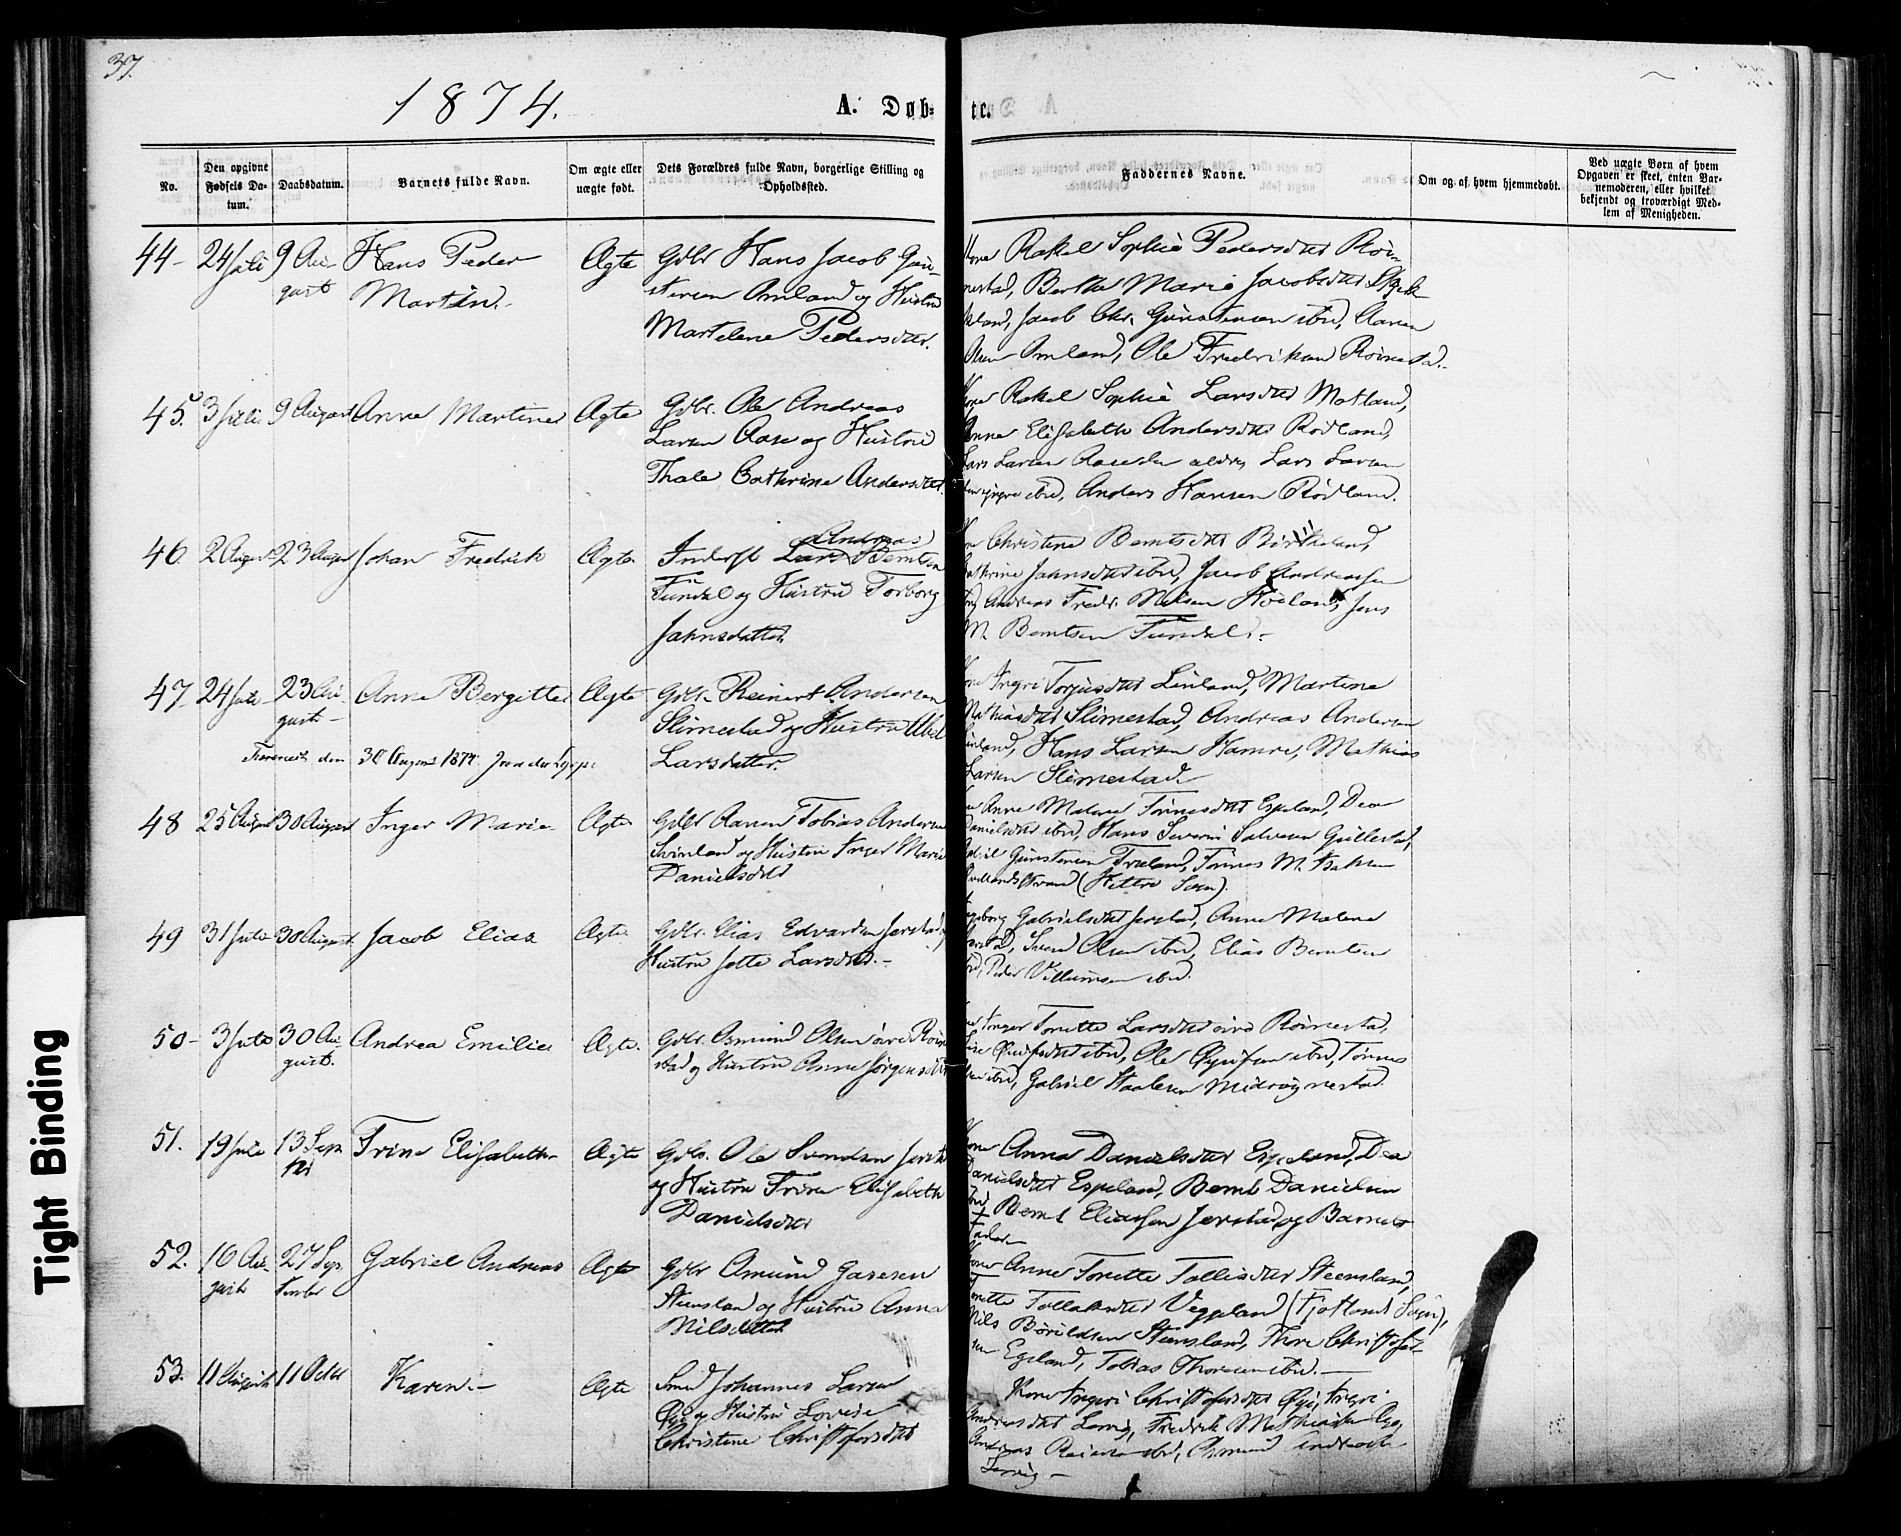 37.
1874.
A. Døb-
te.
No.
Den opgivne Fødsels Da-
tum.
Daabsdatum.
Barnets fulde Navn.
Om ægte eller
uægte født.
Dets Forældres fulde Navn, borgerlige Stilling og
Opholdssted.
Faddernes Navne.
Om og af hvem hjemmedøbt.
Ved uægte Børn af hvem
Opgaven er skeet, enten Bar-
nemoderen, eller hvilket
bekjendt og troværdigt Med-
lem af Menigheden.
44- 24 Juli 9 Au-
gust
Hans Peder
Martin.-
Ægte
Gdbr Hans Jacob Gun-
stensen Omland og Hustru
Martelene Pedersdtr.
Kone Rakel Sophie Pedersdtr Røi-
nestad, Berthe Marie Jacobsdtr
land, Jacob Chr. Gunstensen ibd, Aanen
Olsen Omland, Ole Fredriksen Røinestad.-
45. 3 Juli 9 August Anne Martine Ægte
Gdbr. Ole Andreas
Larsen Aase og Hustru
Thale Cathrine Andersdtr.
Kone Rakel Sophie Larsdtr Motland,
Anne Elisabeth Andersdtr Rødland,
Lars Larsen Aase den ældre, Lars Larsen
den yngre ibd, Anders Hansen Rødland.
46. 2 August 23 August Johan Fredrik Ægte
Inderst Lars Andreas Berntsen
Tundal og Hustru Torborg
Jahnsdatter.
Christine Berntsdtr Birkeland,
Cathrine Jahnsdtr ibd, Jacob Andreassen
ibd, Andreas Fredr. Nilsen Høiland, Jens
M. Berntsen Tundal.-
47. 24 Juli 23 Au-
gust-
Anne Bergitte Ægte
Gdbr. Reinert Andersen
Slimestad og Hustru Abel
Larsdatter.
Kone Ingri Torjusdtr Linland, Martine
Mathiasdtr Slimestad, Andreas Andersen
Linland, Hans Larsen Hamre, Mathias
Larsen Slimestad
den 30 August 1874
48 25 August 30 August Inger Marie Ægte
Gdbr Aanen Tobias Andersen
Svinland og Hustru Inger Marie
Danielsdtr
Anne Malene Tønnesdtr Espeland, Dea
Danielsdtr ibd, Hans Severin Salvesen Gullestad,
Gabriel Gunstensen Træland, Tønnes M.
(Hitterø Sogn).
49 31 Juli 30 August. Jacob Elias Ægte.
Gdbr. Elias Edvardsen Jerstad og
Hustru Jette Larsdtr.-
Ingeborg Gabrielsdtr Jerstad, Anne Malene
Jerstad, Svend Olsen ibd, Elias Berntsen
ibd, Peder Villumsen ibd.
50- 3 Juli 30 Au-
gust.
Andrea Emilie Ægte.
Gdbr. Osmund Olsen øvre Røine-
stad og Hustru Anne Jørgensdtr
Inger Tonette Larsdtr øvre Røinestad,
ibd, Ole ibd, Tønnes
ibd, Gabriel Staalesen Midrøynestad.
51. 19 Juli 13 Sep-
tbr
Trine Elisabeth Ægte
Gdbr. Ole Svendsen Jerstad
og Hustru Trine Elisabeth
Danielsdtr
Kone Anna Danielsdtr Espeland, Dea
Danielsdtr Espeland, Bernt Danielsen
ibd, Bernt Eliassen Jerstad og Barnets
Fader
52. 16 Au-
gust
27 Sep-
tember
Gabriel Andreas Ægte
Gdbr Osmund Gasesen
Steensland og Hustru Anna
Nilsdatter
Kone Anne Tonette Tollisdtr Steensland,
Tonette Tollaksdtr Veggeland (Fjotland Sogn),
Nils Børildsen Steensland, Thore Christoffer-
sen Egeland, Tobias Thoresen ibd.
53. 11 August 11 Octbr Karen.- Ægte
Smed Johannes Larsen
Øye og Hustru Lovise
Christine Christoffersdtr
Kone Ingeri Christoffersdtr Øye, Ingri
Andreasdtr Lervig, Fredrik Mathiassen
Andreas ibd, Osmund
Lervig -
Tight Binding